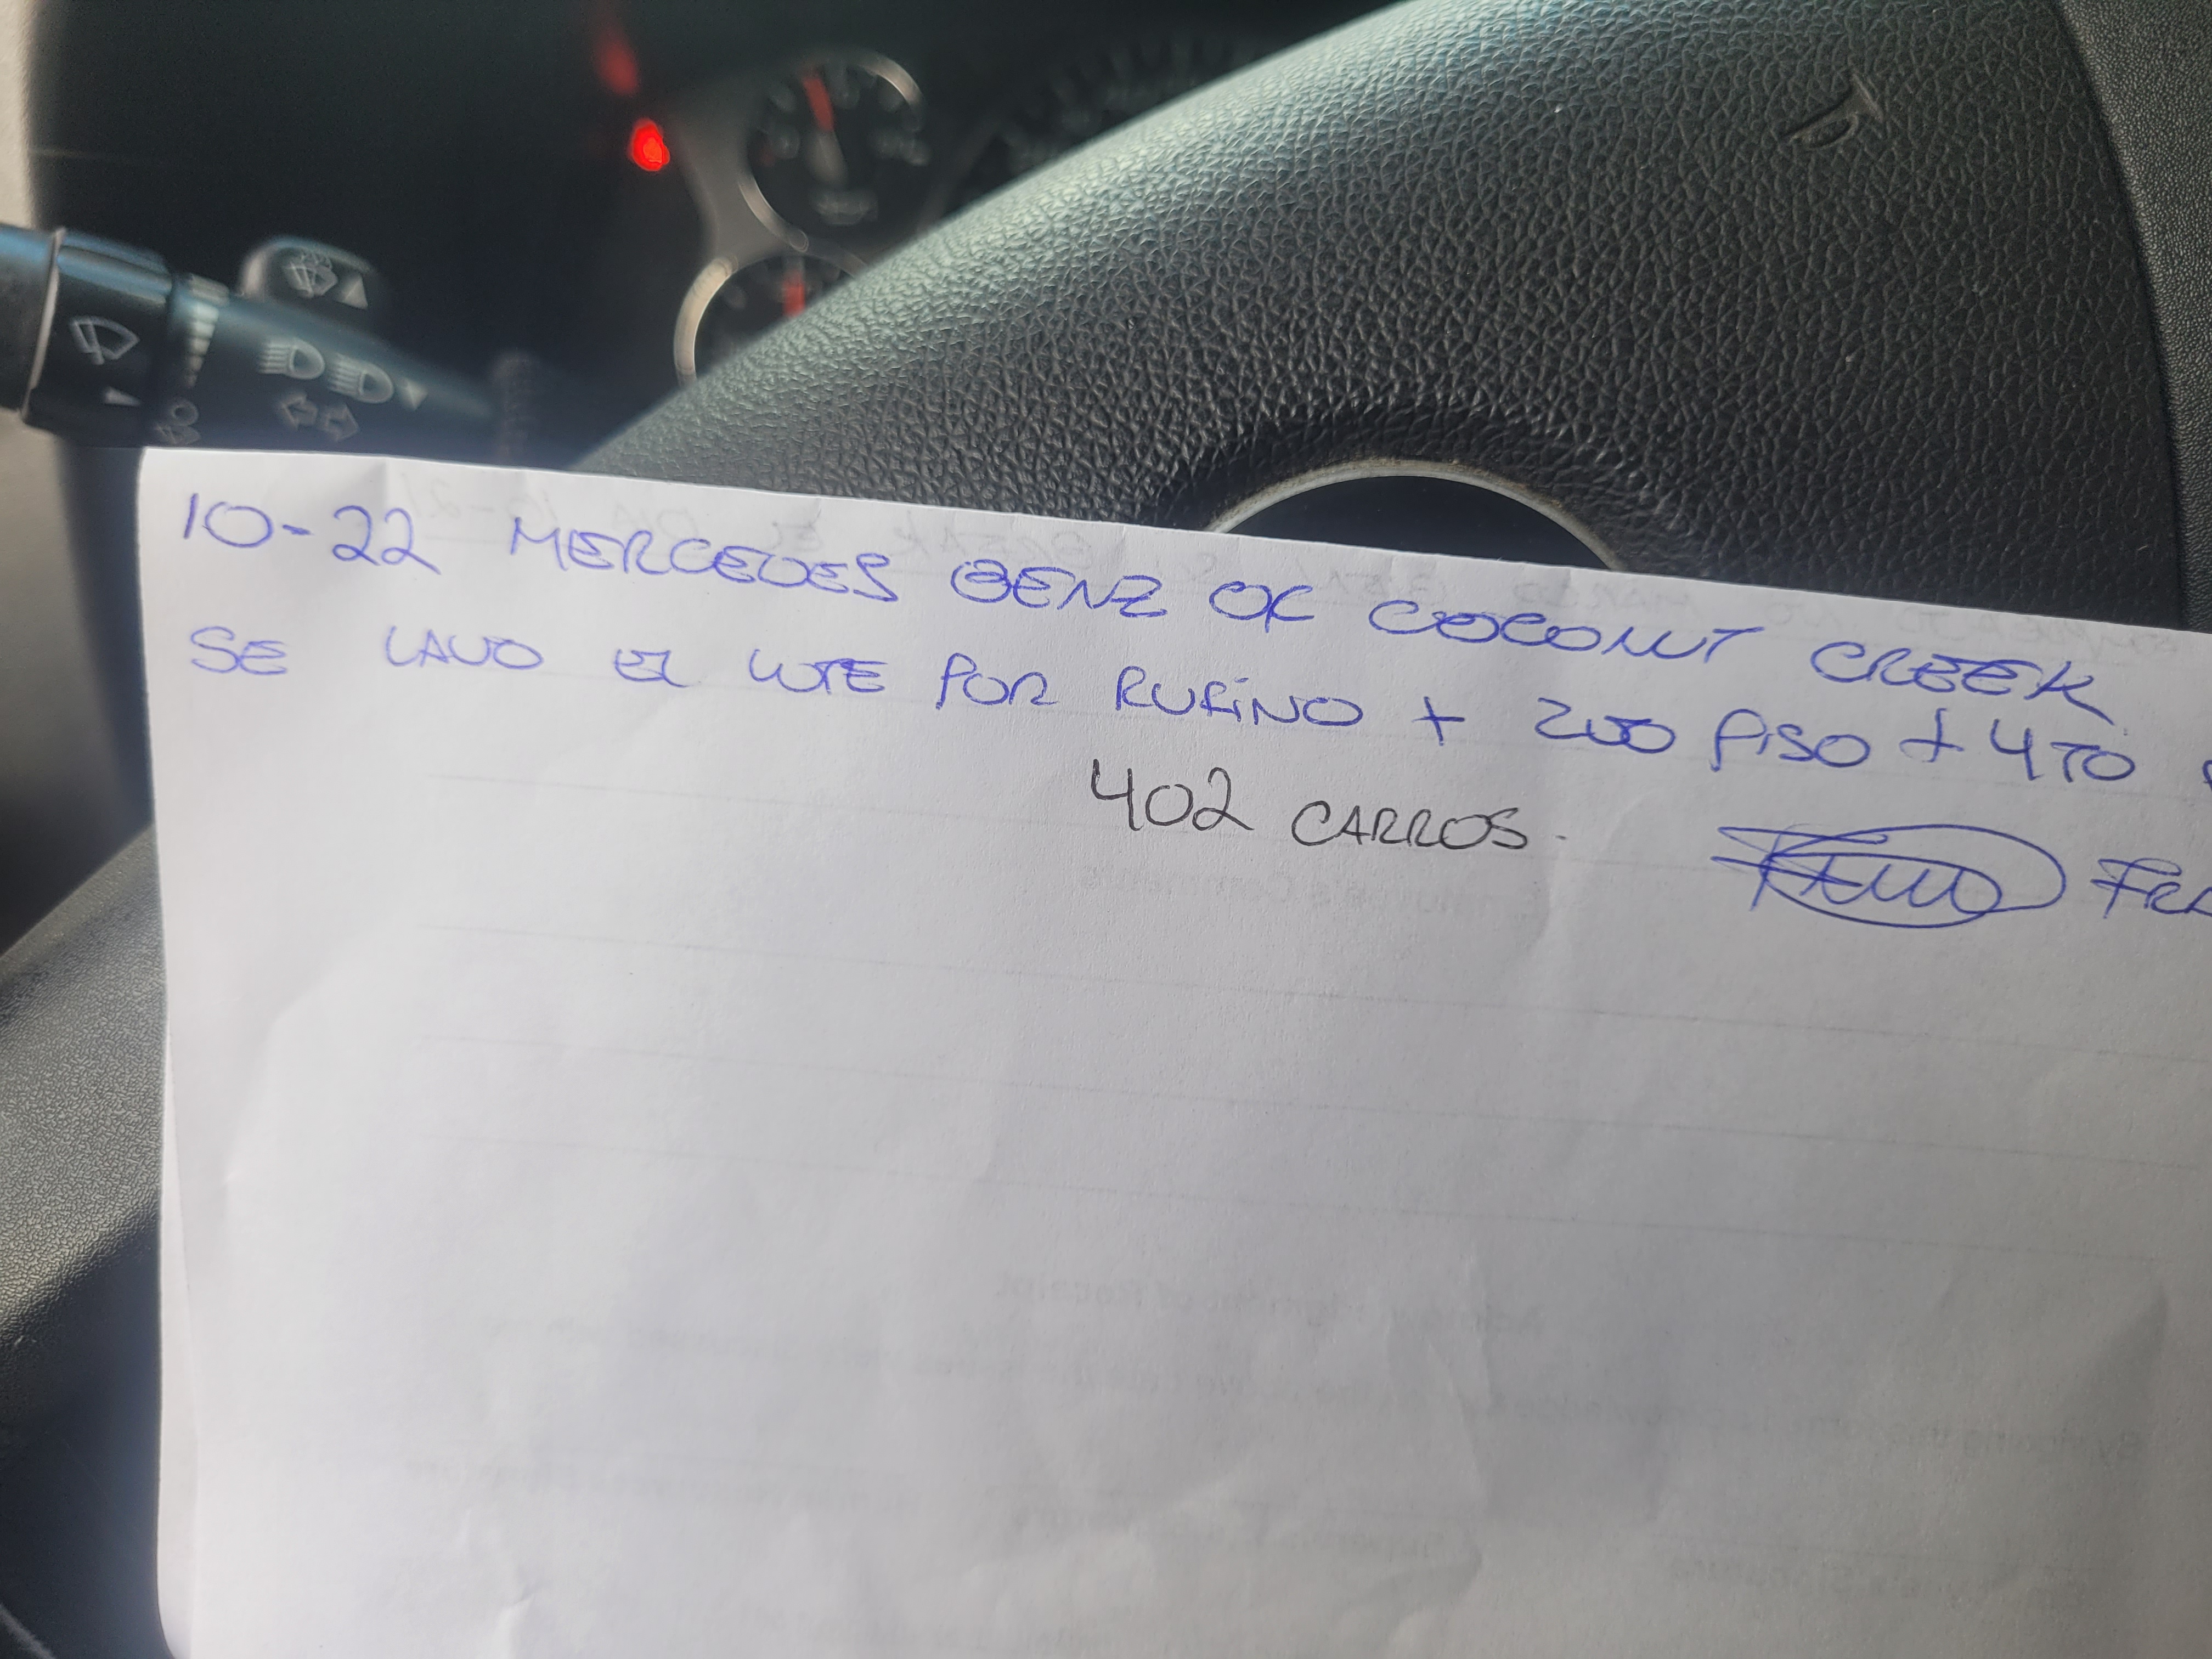 10-22 MERCEDES BENZ OF COCONUT CREEK
SE LAVO EL LOTE POR RUFINO + 2DO PISO + 4TO
402 CARROS.
FRA